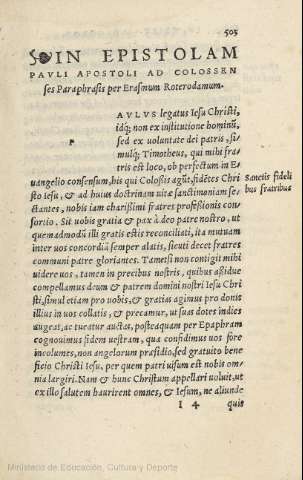 505
IN EPISTOLAM
PAVLI APOSTOLI AD COLOSSEN
ses Paraphrasis per Erasmum Roterodamum.
P AVLVS legatus Iesu Christi,
idq; non ex institutione hominũ,
sed ex voluntate dei patris, si-
mulq; Timotheus, qui mihi fra-
tris est loco, ob perfectum in E-
uangelio consensum, his qui Colossis agũt, fidẽtes Chri
sto Iesu, & ad huius doctrinam uitæ sanctimoniam se-
ctantes, nobis iam charissimi fratres professionis con-
sortio. Sit uobis gratia & pax à deo patre nostro, ut
quemadmodũ illi gratis estis reconciliati, ita mutuam
inter uos concordiã semper alatis, sicuti decet fratres
communi patre gloriantes. Tametsi non contigit mihi
uidere uos, tamen in precibus nostris, quibus aßidue
compellamus deum & patrem domini nostri Iesu Chri
sti, simul etiam pro uobis, & gratias agimus pro donis
illius in uos collatis, & precamur, ut suas dotes indies
augeat, ac tueatur auctas, posteaquam per Epaphram
cognouimus fidem uestram, qua confidimus uos fore
incolumes, non angelorum præsidio, sed gratuito bene
ficio Christi Iesu, per quem patri uisum est nobis om-
nia largiri. Nam & hunc Christum appellari uoluit, ut
ex illo salutem haurirent omnes, & Iesum, ne aliunde
I 4 quis
Sanctis fideli
bus fratribus
Ministerio de Educación, Cultura y Deporte